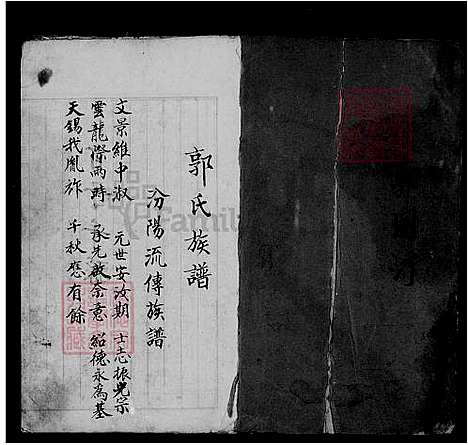 郭氏族譜
汾陽流傳族譜
文景維中淑 元世安汝期 士志振光宗
雲龍際雨時 承先啟泰意 紹德永為基
天錫我胤祚 千秋慶有餘